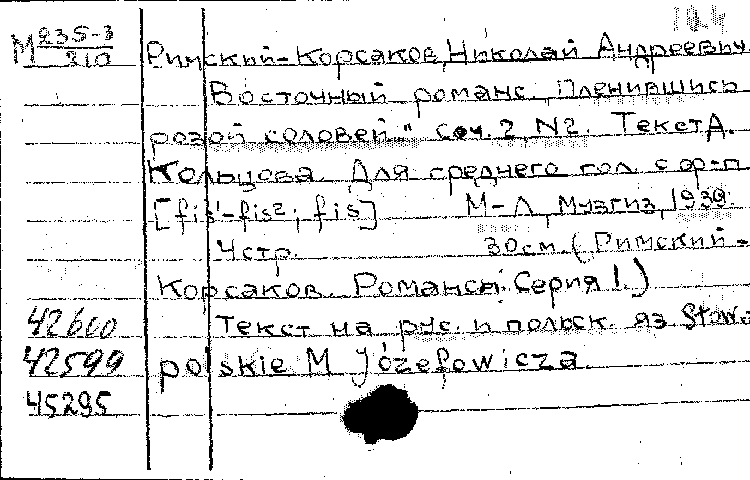 М 235-3
310
Римский-Корсаков, Николай Андреевич.
Восточный романс. Пленившись
розой соловей" Соч. 2 N2. Текст А.
Кольцова. Для среднего гол. с ф-п
[fis¹-fis²; fis] М-Л, Музгиз, 1939.
4стр. 30см. (Римский-
Корсаков. Романсы. Серия 1.)
42600 Текст на рус. и польск. яз Słow.
42599 polskie M Józefowicza.
45295